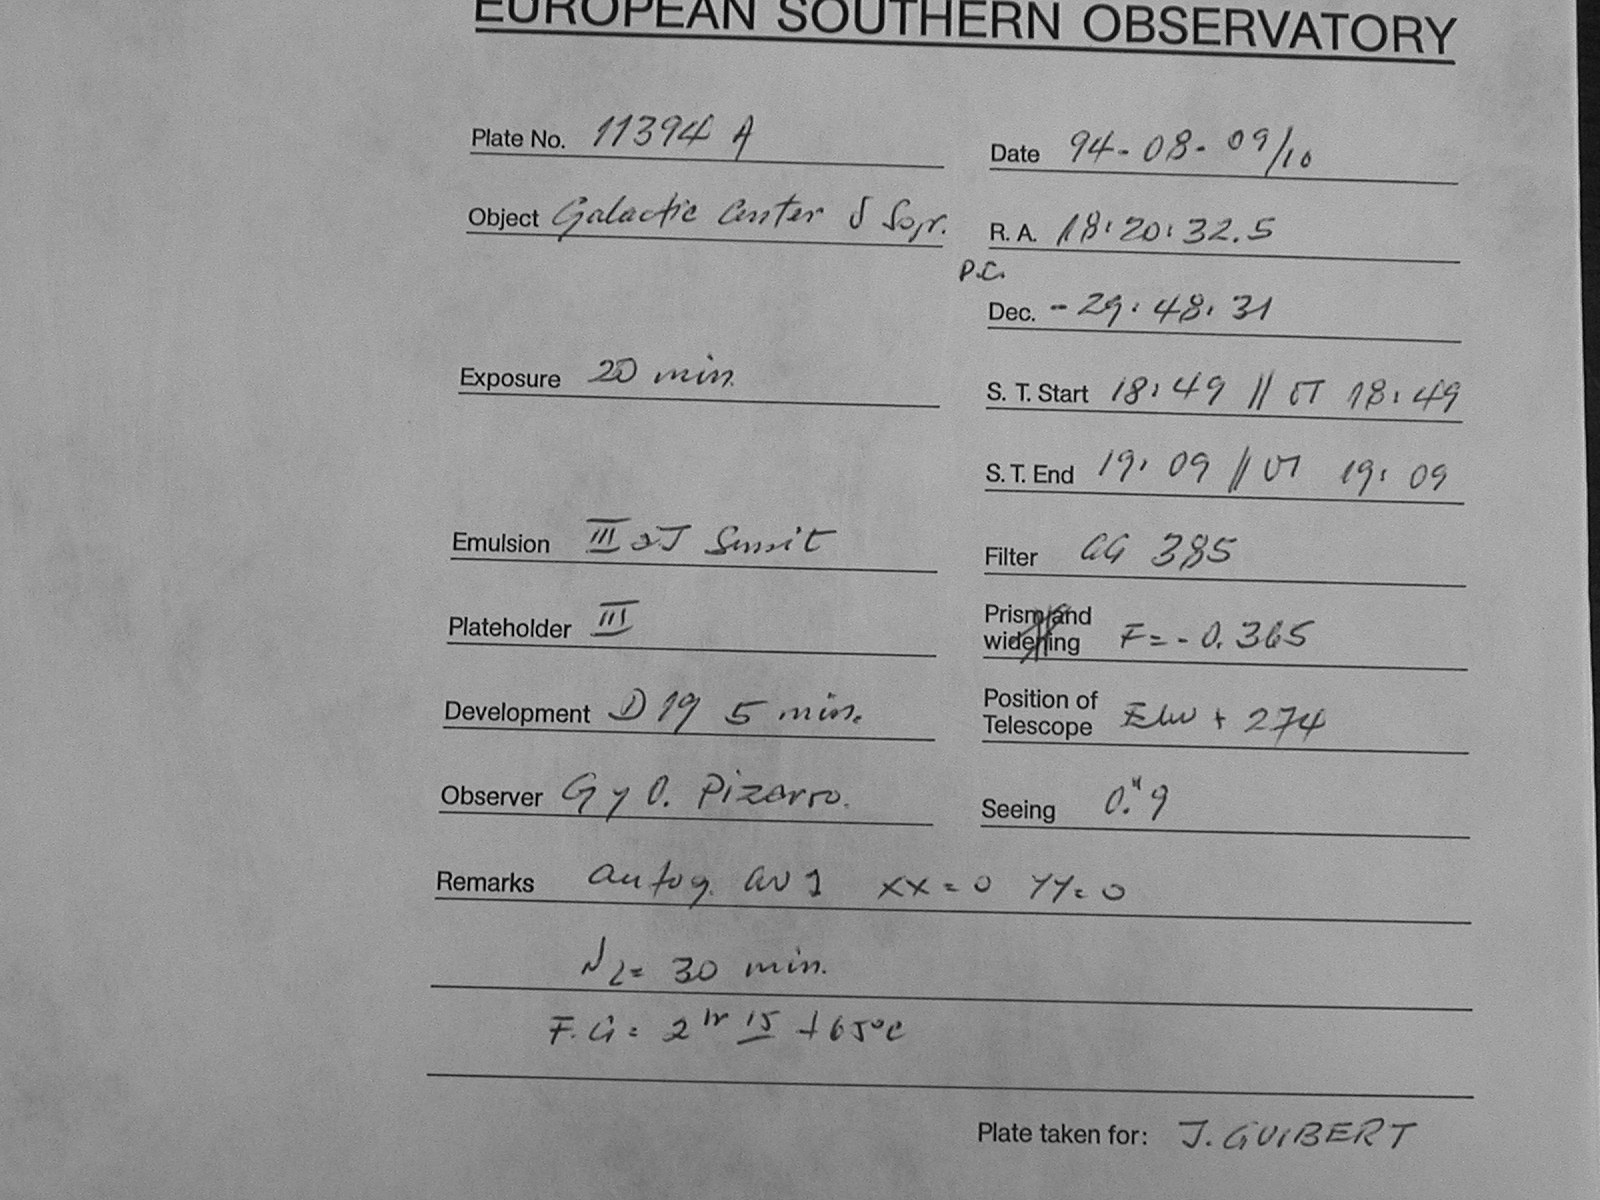 EUROPEAN SOUTHERN OBSERVATORY
Plate No. 11394 A
Date 94-08-09/10
Object Galactic Center
R. A. 18:20:32.5
P.C.
Dec. -29:48:31
Exposure 20 min.
S. T. Start 18:49 // UT 18:49
S. T. End 19:09 // UT 19:09
Emulsion III aJ
Filter GG 385
Plateholder III
Prism and
widening F=-0.365
Development D19 5 min.
Position of
Telescope + 274
Observer G y O. Pizarro.
Seeing 0."9
Remarks autog. XX=0 YY=0
N2= 30 min.
F.G= 2hr 15 +65°C
Plate taken for: J. GUIBERT